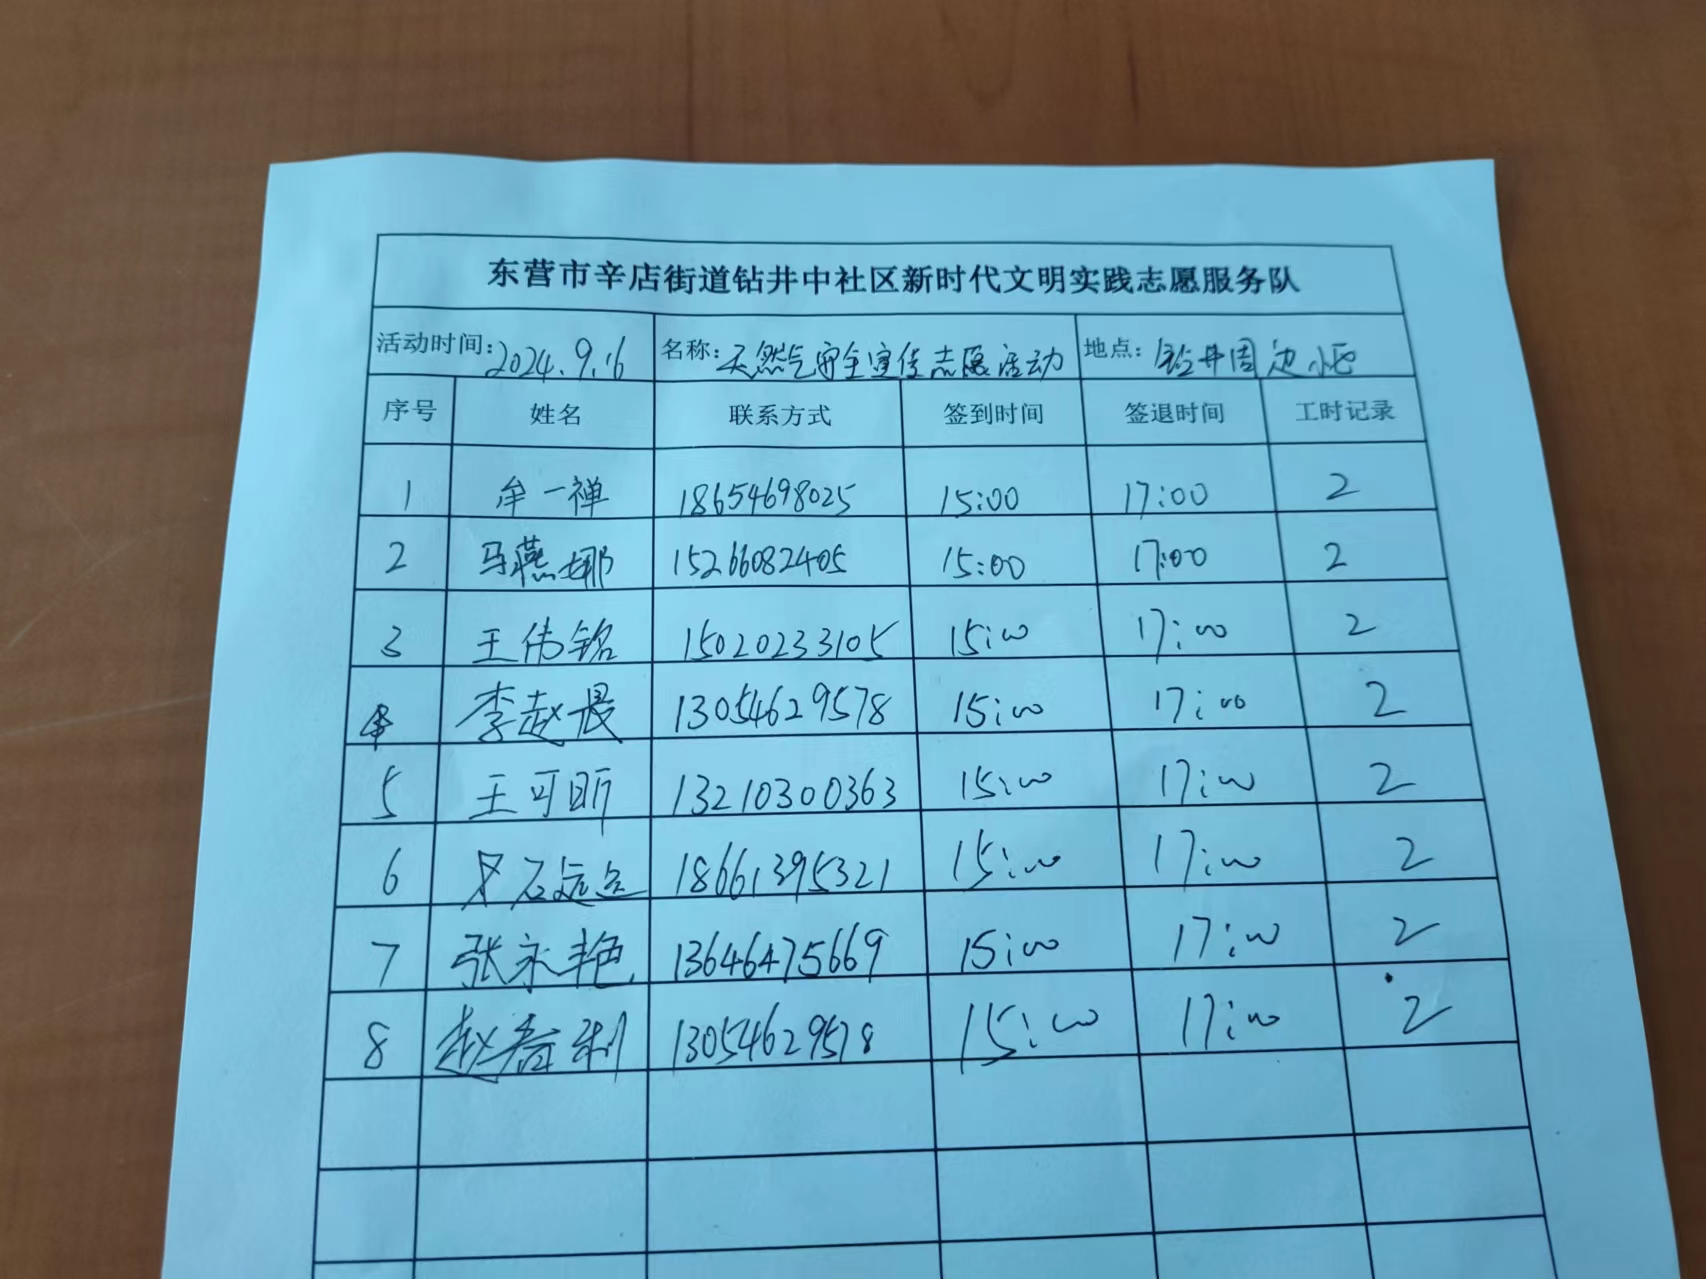 东营市辛店街道钻井中社区新时代文明实践志愿服务队
活动时间:2024.9.16 名称:天然气安全宣传志愿活动 地点:钻井周边小区
序号 姓名 联系方式 签到时间 签退时间 工时记录
1 牟一禅 18654698025 15:00 17:00 2
2 马燕娜 15266082405 15:00 17:00 2
3 王伟铭 15020233105 15:00 17:00 2
4 李赵晨 13054629578 15:00 17:00 2
5 王可昕 13210300363 15:00 17:00 2
6 18661395321 15:00 17:00 2
7 张永艳 13646475669 15:00 17:00 2
8 赵春利 13054629578 15:00 17:00 2